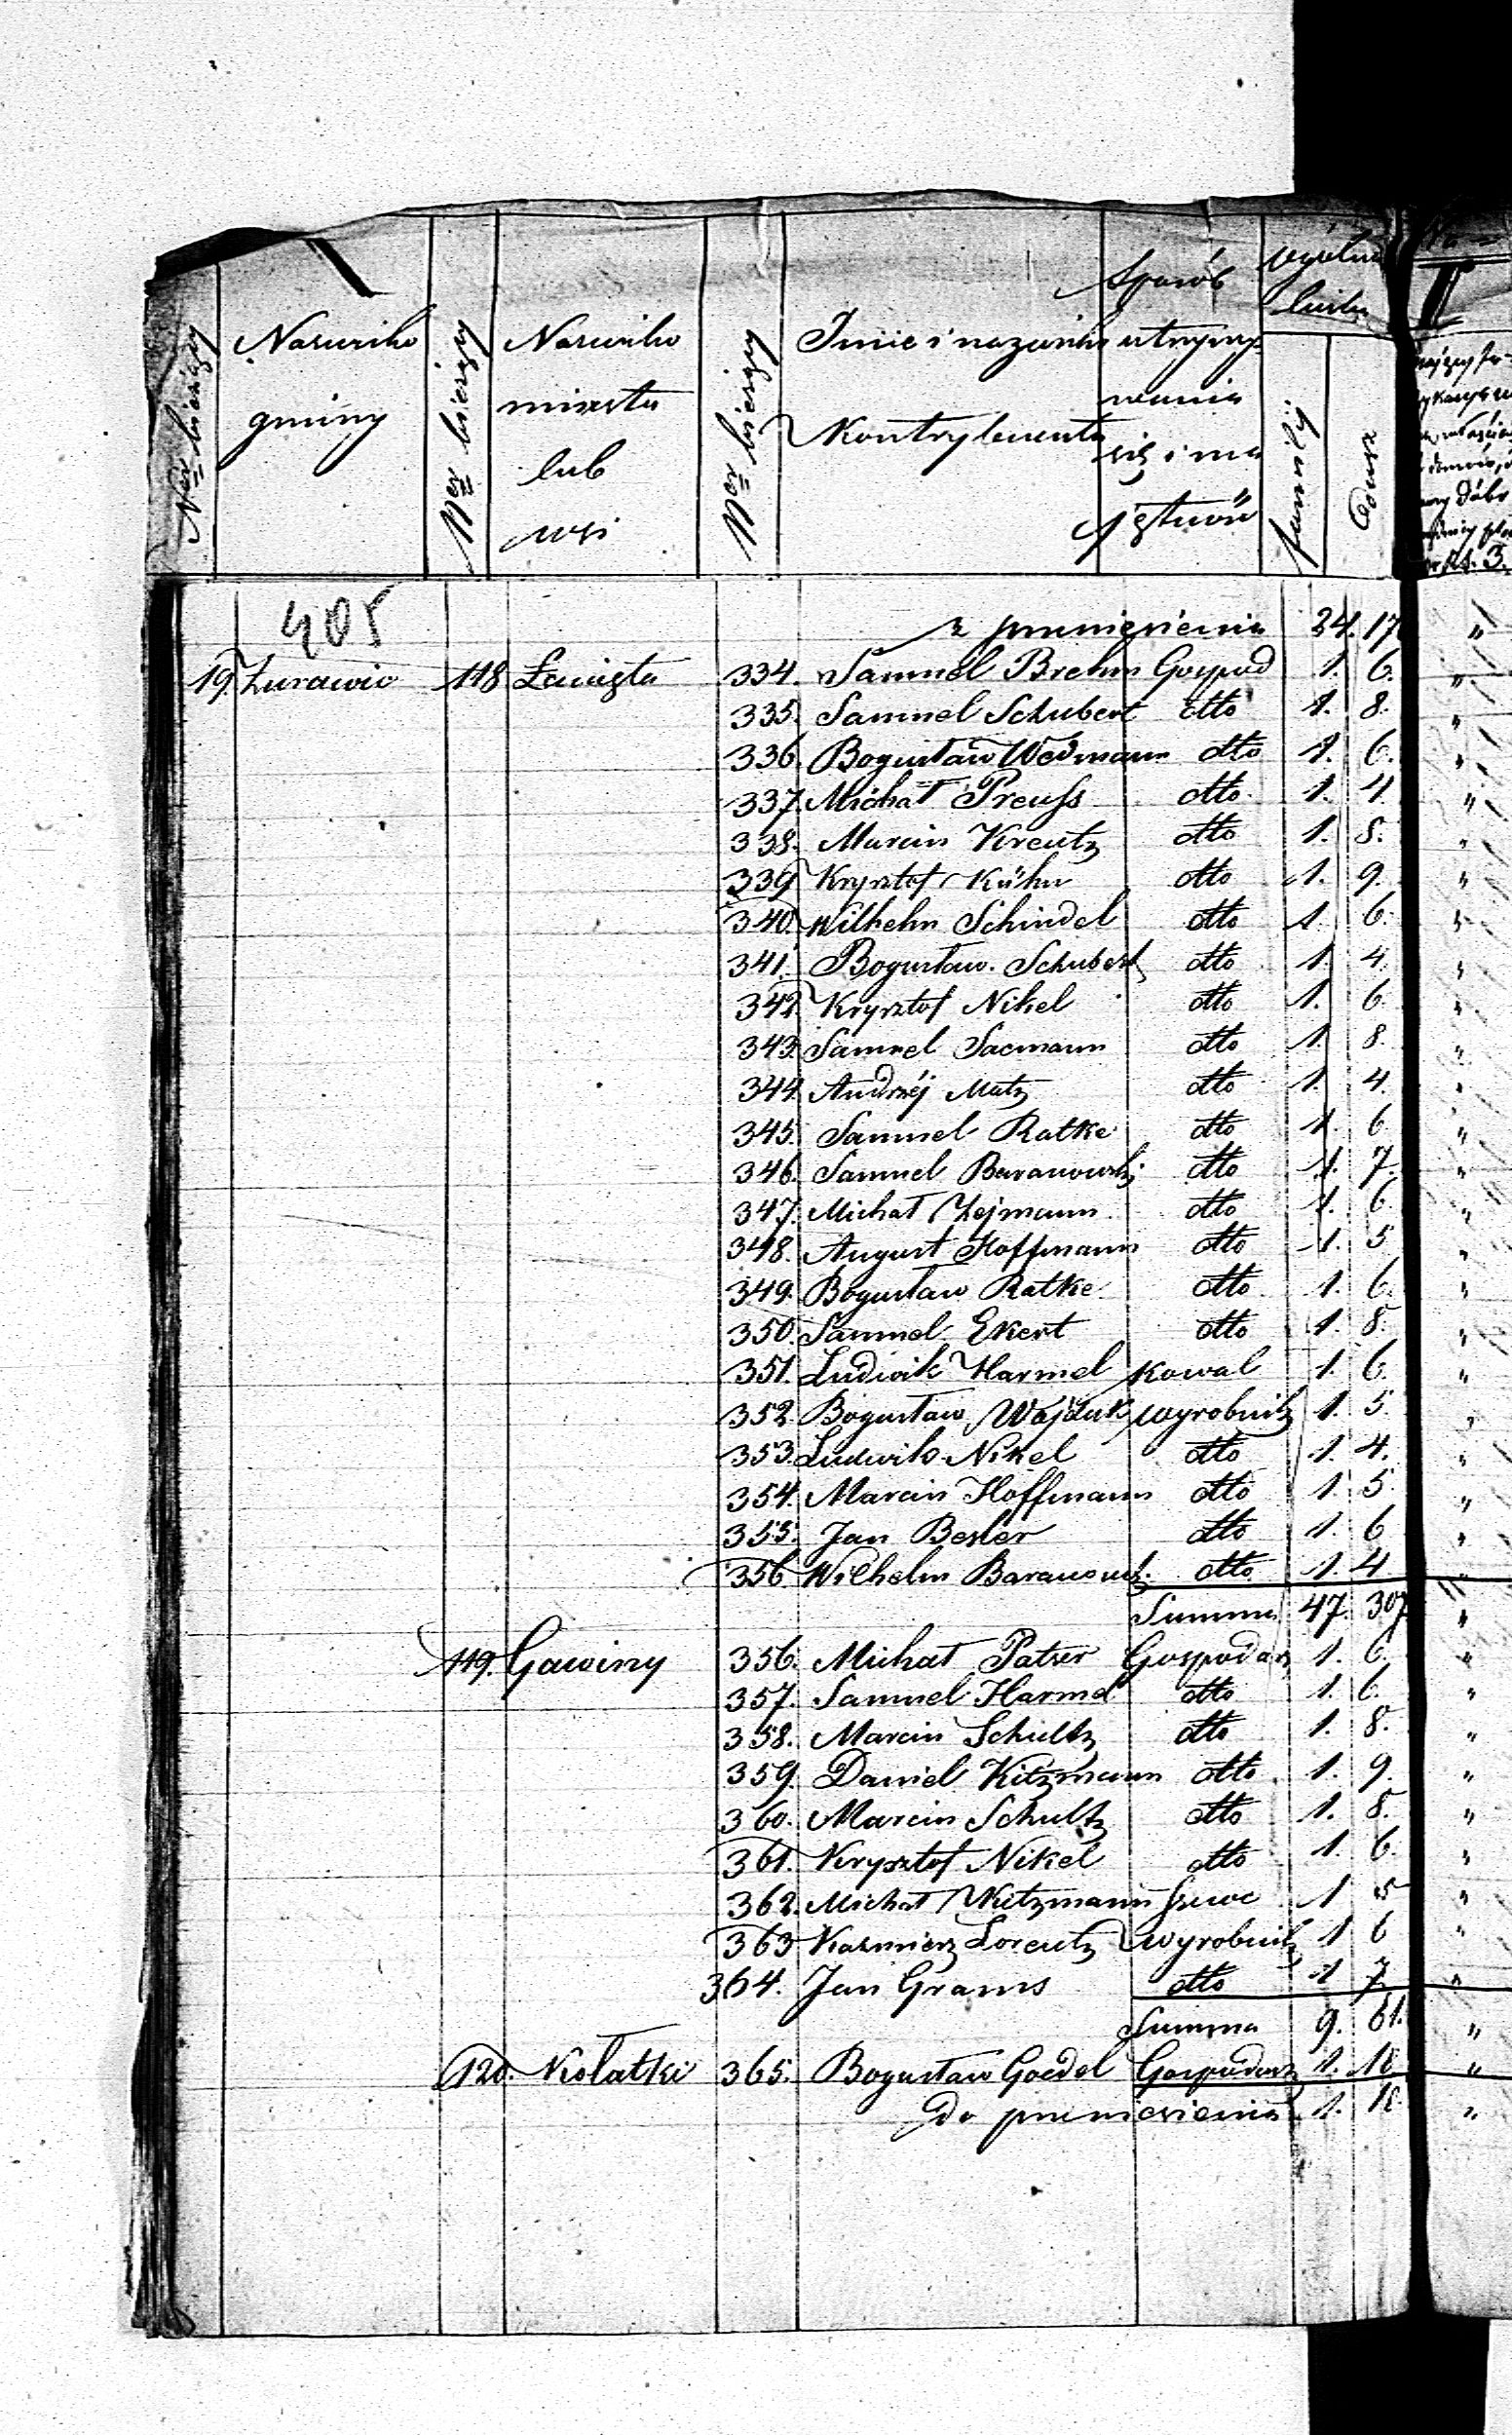 Ner bieżący
Nazwisko gminy
Ner bieżący
Nazwisko miasta lub wsi
Ner bieżący
Imie i nazwisko Kontrybuenta
Sposób utrzymywania się i ma
familij
dusz
405
z przeniesienia 24. 17
19. Żurawie 118 Zawięta 334. Samuel Brehm Gospod 1. 6. "
335. Samuel Schubert dtto 1. 8. "
336. Bogusław Wedmann dtto 1. 6. "
337. Michał Preuss dtto 1. 4. "
338. Marcin Kreutz dtto 1. 8. "
339 Krysztof Kühn dtto 1. 9. "
340. Wilhelm Schindel dtto 1. 6. "
341. Bogusław Schubert dtto 1. 4. "
342 Krysztof Nikel dtto 1. 6. "
343. Samuel Sacmann dtto 1. 8. "
344 Andrzéj Matz dtto 1. 4. "
345. Samuel Ratke dtto 1. 6 "
346. Samuel Baranowski dtto 1. 7. "
347. Michał Zejmann dtto 1. 6. "
348. August Hoffmann dtto 1. 5 "
349. Bogusław Ratke dtto 1. 6. "
350. Samuel Ekert dtto 1. 8. "
351. Ludwik Harmel Kowal 1. 6. "
352. Bogusław Wojduk wyrobnik 1. 5. "
353. Ludwik Nikel dtto 1. 4. "
354. Marcin Hoffmann dtto 1 5. "
355. Jan Besler dtto 1. 6 "
356. Wilhelm Baranowsk. dtto 1. 4 "
Summa 47. 307 "
119. Gawiny 356. Michał Patzer Gospodarz 1. 6. "
357. Samuel Harmel dtto 1. 6. "
358. Marcin Schultz dtto 1. 8. "
359. Daniel Kitzmann dtto 1. 9. "
360. Marcin Schultz dtto 1. 8. "
361. Krysztof Nikel dtto 1. 6. "
362. Michał Kitzmann Szewc 1 5 "
363 Kazmierz Lorentz wyrobnik 1 6 "
364. Jan Grams dtto 1 7 "
Summa 9. 61. "
120. Kołatki 365. Bogusław Goedel Gospodarz 1. 10. "
Do przeniesienia 1. 10. "